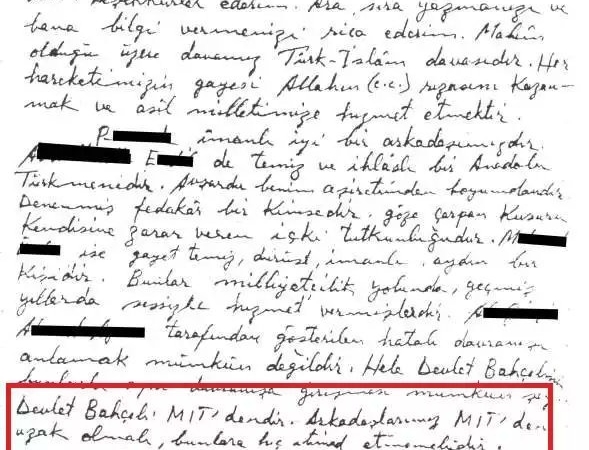 ederim. Ara sıra yazmanızı ve
bana bilgi vermenizi rica ederim. Malûm
olduğu üzere davamız Türk-İslâm davasıdır. Her
hareketimizin gayesi Allahın (c.c.) rızasını kazan-
mak ve asil milletimize hizmet etmektir.
P imanlı iyi bir arkadaşımızdır.
A E de temiz ve ihlâslı bir Anadolu
Türkmenidir. Avşardır benim aşiretimden boyumdandır.
Denenmiş fedakâr bir kimsedir. göze çarpan kusuru
kendisine zarar veren içki tutkunluğudur. M
ise gayet temiz, dürüst, imanlı, aydın bir
kişidir. Bunlar milliyetcilik yolunda, geçmiş
yıllarda sessizce hizmet vermişlerdir. A
A tarafından gösterilen hatalı davranışı
anlamak mümkün değildir. Hele Devlet Bahçelinin
girişmesi mümkün
Devlet Bahçeli MİT'dendir. Arkadaşlarımız MİT'den
uzak olmalı, bunlara hiç itimad etmemelidir.